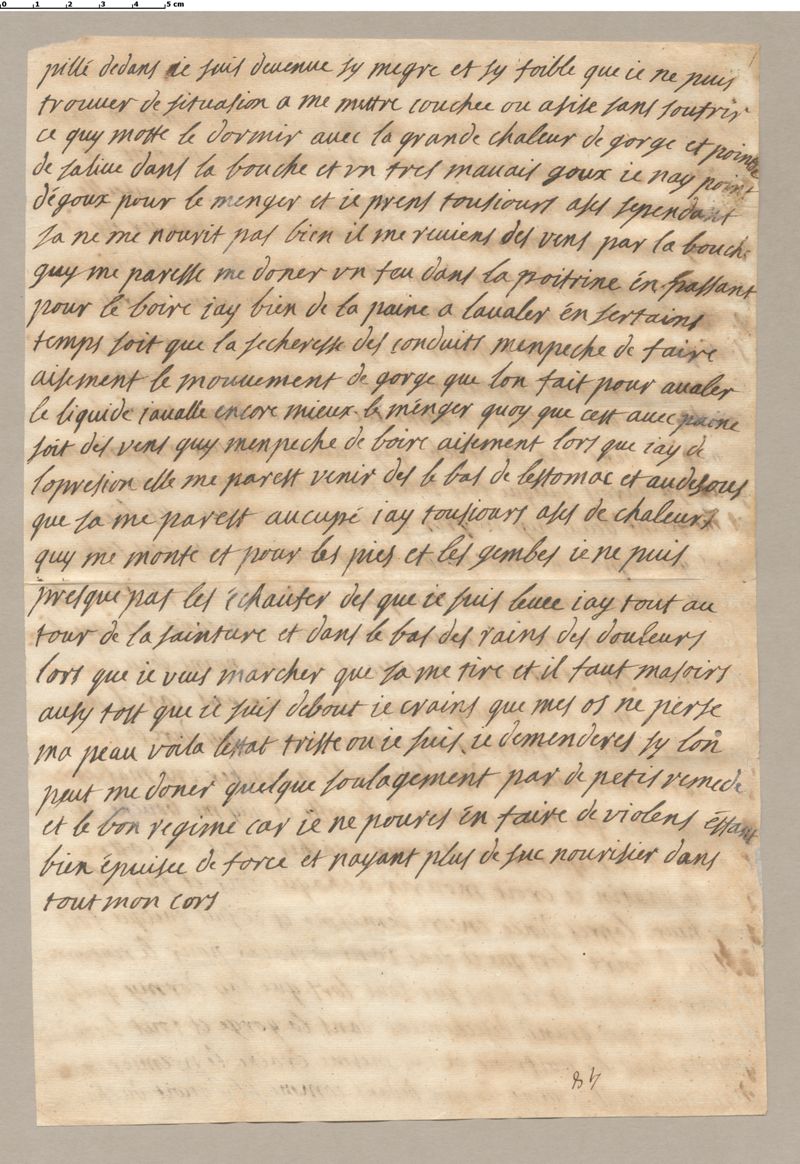 0 1 2 3 4 5 cm
pillé dedans ie suis devenue sy megre et sy foible que ie ne puis
trouuer de situasion a me mettre couchee ou asise sans soufrir
ce quy motte le dormir auec la grande chaleur de gorge et point
de saliue dans la bouche et vn tres mauais goux ie nay point
dégoux pour le menger et ie prens tousiours ases sependant
sa ne me nourit pas bien il me reuiens des vens par la bouche
quy me paresse me doner vn feu dans la poitrine én passant
pour le boire iay bien de la paine a laualer én sertains
temps soit que la secheresse des conduits menpeche de faire
aisement le mouuement de gorge que lon fait pour aualer
le liquide iaualle encore mieux le menger quoy que cest auec paine
soit des vens quy menpeche de boire aisement lors que iay de
lopresion elle me parest venir des le bas de lestomac et audesous
que sa me parest aucupé iay tousiours ases de chaleurs
quy me monte et pour les pies et les gembes ie ne puis
presque pas les échaufer des que ie suis leuee iay tout au
tour de la sainture et dans le bas des rains des douleurs
lors que ie veus marcher que sa me tire et il faut masoirs
ausy tost que ie suis debout ie crains que mes os ne perse
ma peau voila lestat triste ou ie suis ie demenderes sy lon
peut me doner quelque soulagement par de petis remede
et le bon regime car ie ne poures én faire de violens éstant
bien épuisee de force et nayant plus de suc nourisier dans
tout mon cors